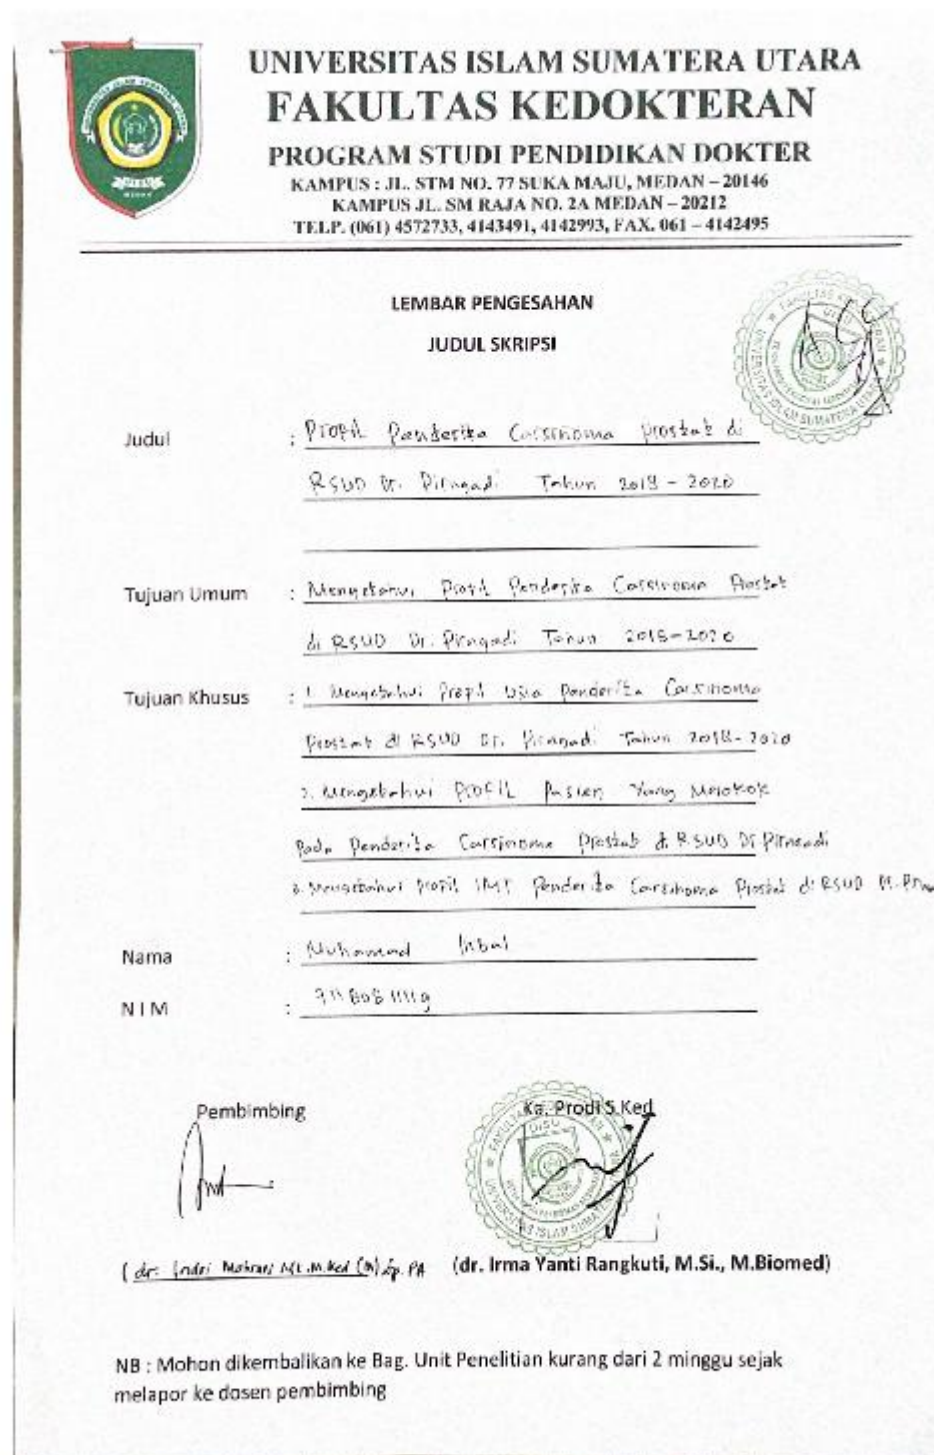 UNIVERSITAS ISLAM SUMATERA UTARA
FAKULTAS KEDOKTERAN
PROGRAM STUDI PENDIDIKAN DOKTER
KAMPUS : JL. STM NO. 77 SUKA MAJU, MEDAN – 20146
KAMPUS JL. SM RAJA NO. 2A MEDAN – 20212
TELP. (061) 4572733, 4143491, 4142993, FAX. 061 – 4142495
LEMBAR PENGESAHAN
JUDUL SKRIPSI
Judul : Profil Penderita Carsinoma Prostat di
RSUD Dr. Pirngadi Tahun 2018 - 2020
Tujuan Umum : Mengetahui Profil Penderita Carsinoma Prostat
di RSUD Dr. Pirngadi Tahun 2018-2020
Tujuan Khusus : 1. Mengetahui Profil Usia Penderita Carsinoma
Prostat di RSUD Dr. Pirngadi Tahun 2018-2020
2. Mengetahui Profil Pasien Yang Merokok
Pada Penderita Carsinoma Prostat di RSUD Dr Pirngadi
3. Mengetahui Profil IMT Penderita Carsinoma Prostat di RSUD
Nama : Muhamad
N I M :
Pembimbing
Ka. Prodi S.Ked
(dr. Indri M.Ked Sp. PA
(dr. Irma Yanti Rangkuti, M.Si., M.Biomed)
NB : Mohon dikembalikan ke Bag. Unit Penelitian kurang dari 2 minggu sejak
melapor ke dosen pembimbing